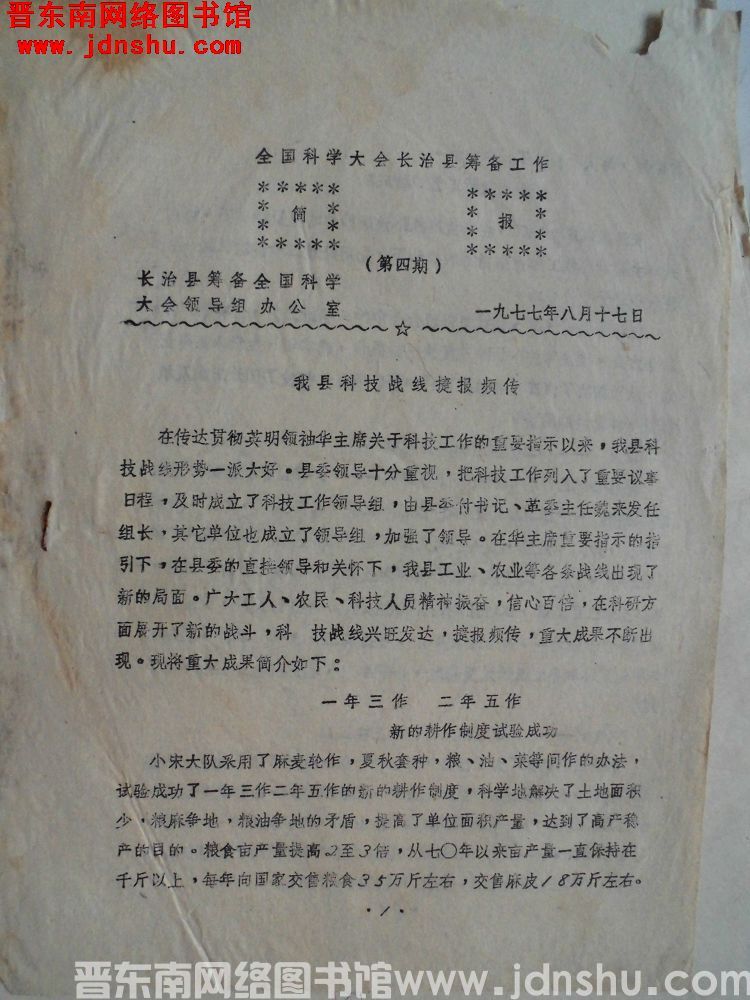 晋东南网络图书馆
www.jdnshu.com
全国科学大会长治县筹备工作
*****
*****
* 简 *
* 报 *
*****
*****
（第四期）
长治县筹备全国科学
大会领导组办公室
一九七七年八月十七日
～～～☆～～～
我县科技战线捷报频传
在传达贯彻英明领袖华主席关于科技工作的重要指示以来，我县科
技战线形势一派大好。县委领导十分重视，把科技工作列入了重要议事
日程，及时成立了科技工作领导组，由县委付书记、革委主任魏来发任
组长，其它单位也成立了领导组，加强了领导。在华主席重要指示的指
引下，在县委的直接领导和关怀下，我县工业、农业等各条战线出现了
新的局面。广大工人、农民、科技人员精神振奋，信心百倍，在科研方
面展开了新的战斗，科 技战线兴旺发达，捷报频传，重大成果不断出
现。现将重大成果简介如下：
一年三作 二年五作
新的耕作制度试验成功
小宋大队采用了麻麦轮作，夏秋套种，粮、油、菜等间作的办法，
试验成功了一年三作二年五作的新的耕作制度，科学地解决了土地面积
少，粮麻争地，粮油争地的矛盾，提高了单位面积产量，达到了高产稳
产的目的。粮食亩产量提高2至3倍，从七〇年以来亩产量一直保持在
千斤以上，每年向国家交售粮食35万斤左右，交售麻皮18万斤左右。
·1·
晋东南网络图书馆www.jdnshu.com